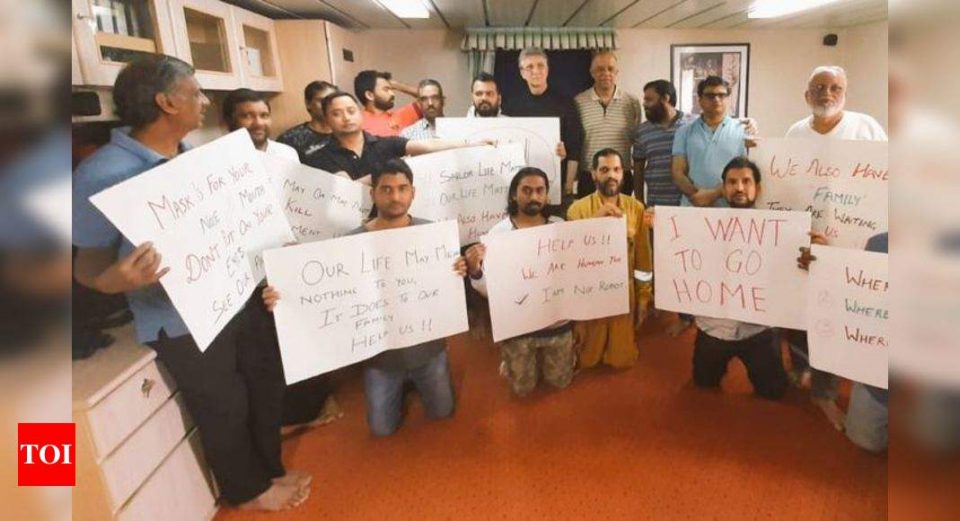 MASK IS FOR YOUR
NOSE MOUTH
DON'T PUT ON YOUR
EYES
SEE OUR
MAY OR MAY NOT
KILL
SAILOR LIFE
OUR LIFE
ALSO HAVE
WE ALSO HAVE
FAMILY
THEY ARE WAITING
US
OUR LIFE MAY
NOTHING TO YOU,
IT DOES TO OUR
FAMILY
HELP US !!
HELP US !!
WE ARE HUMAN TOO
✓ I AM NOT ROBOT
I WANT
TO GO
HOME
WHERE
WHERE
TOI